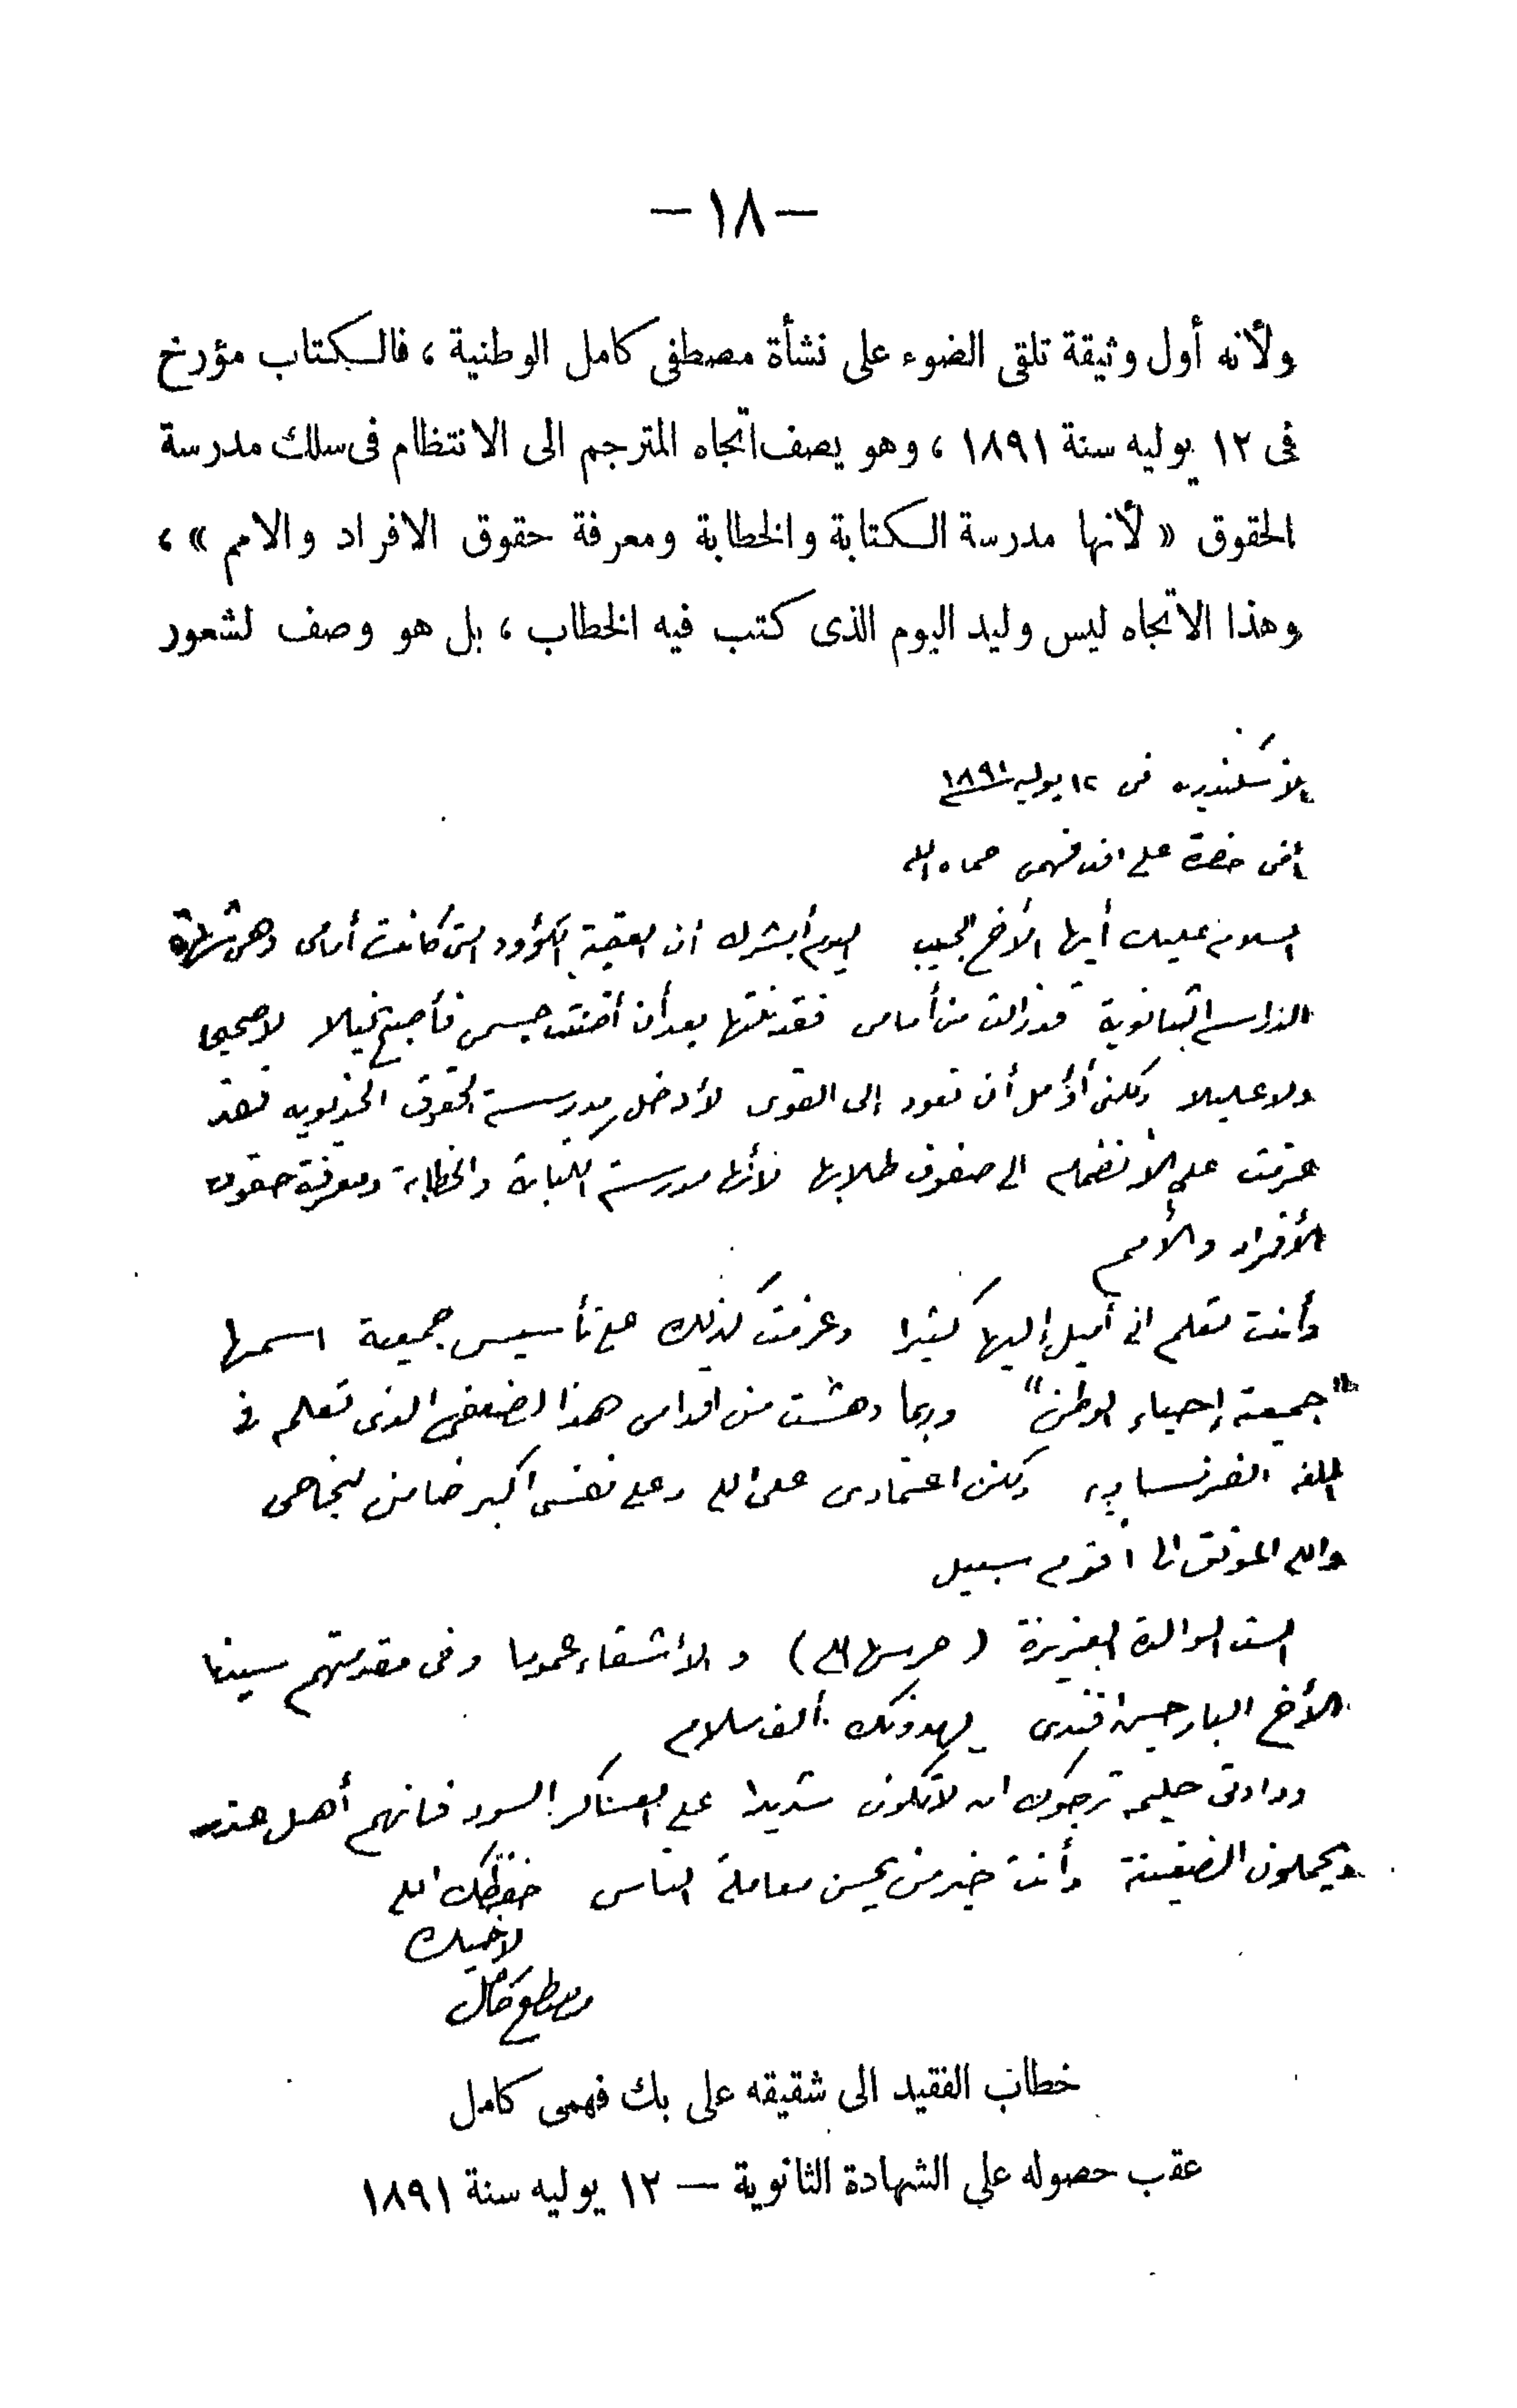 — ١٨ —
ولأنه أول وثيقة تلقى الضوء على نشأة مصطفى كامل الوطنية ، فالكتاب مؤرخ
فى ١٢ يوليه سنة ١٨٩١ ، وهو يصف اتجاه المترجم الى الانتظام فى سلك مدرسة
الحقوق « لأنها مدرسة الكتابة والخطابة ومعرفة حقوق الافراد والامم » ،
وهذا الاتجاه ليس وليد اليوم الذى كتب فيه الخطاب ، بل هو وصف لشعور
الاسكندريه فى ١٢ يوليه ١٨٩١
أخى حضرة على افندى فهمى حماه الله
السلام عليك أيها الأخ الحبيب اليوم أبشرك أن العقبة الكؤود التى كانت أمامى وهى شهادة
الدراسة الثانوية قد زالت من أمامى فقد نلتها بعد أن أضنت جسمى فأصبح نحيلا لا صحيحا
ولا عليلا ولكنى أؤمل أن تعود إلى القوى لأدخل مدرسة الحقوق الخديويه فقد
عزمت على الأنضمام الى صفوف طلابها لأنها مدرسة الكتابة والخطابة ومعرفة حقوق
الأفراد والأمم
وأنت تعلم انى أميل إليها كثيرا وعزمت كذلك على تأسيس جمعية اسمها
"جمعية إحياء الوطن" وربما دهشت من اقدامى هذا لضعفى الذى تعلم فى
اللغة الفرنساوية ولكن اعتمادى على الله وعلى نفسى اكبر ضامن لنجاحى
والله الموفق الى أقوم سبيل
الست الوالدة العزيزة (حرسها الله) والأشقاء عموما وفى مقدمتهم سيدنا
الأخ البار حسين افندى يهدونك ألف سلام
ودادتى حليمه ترجوك ان لا تكون شديدا على العساكر السود فانهم أهل غدر
ويحملون الضغينة وأنت خير من يحسن معاملة الناس حفظك الله
لاخيك
مصطفى كامل
خطاب الفقيد الى شقيقه على بك فهمى كامل
عقب حصوله على الشهادة الثانوية — ١٢ يوليه سنة ١٨٩١